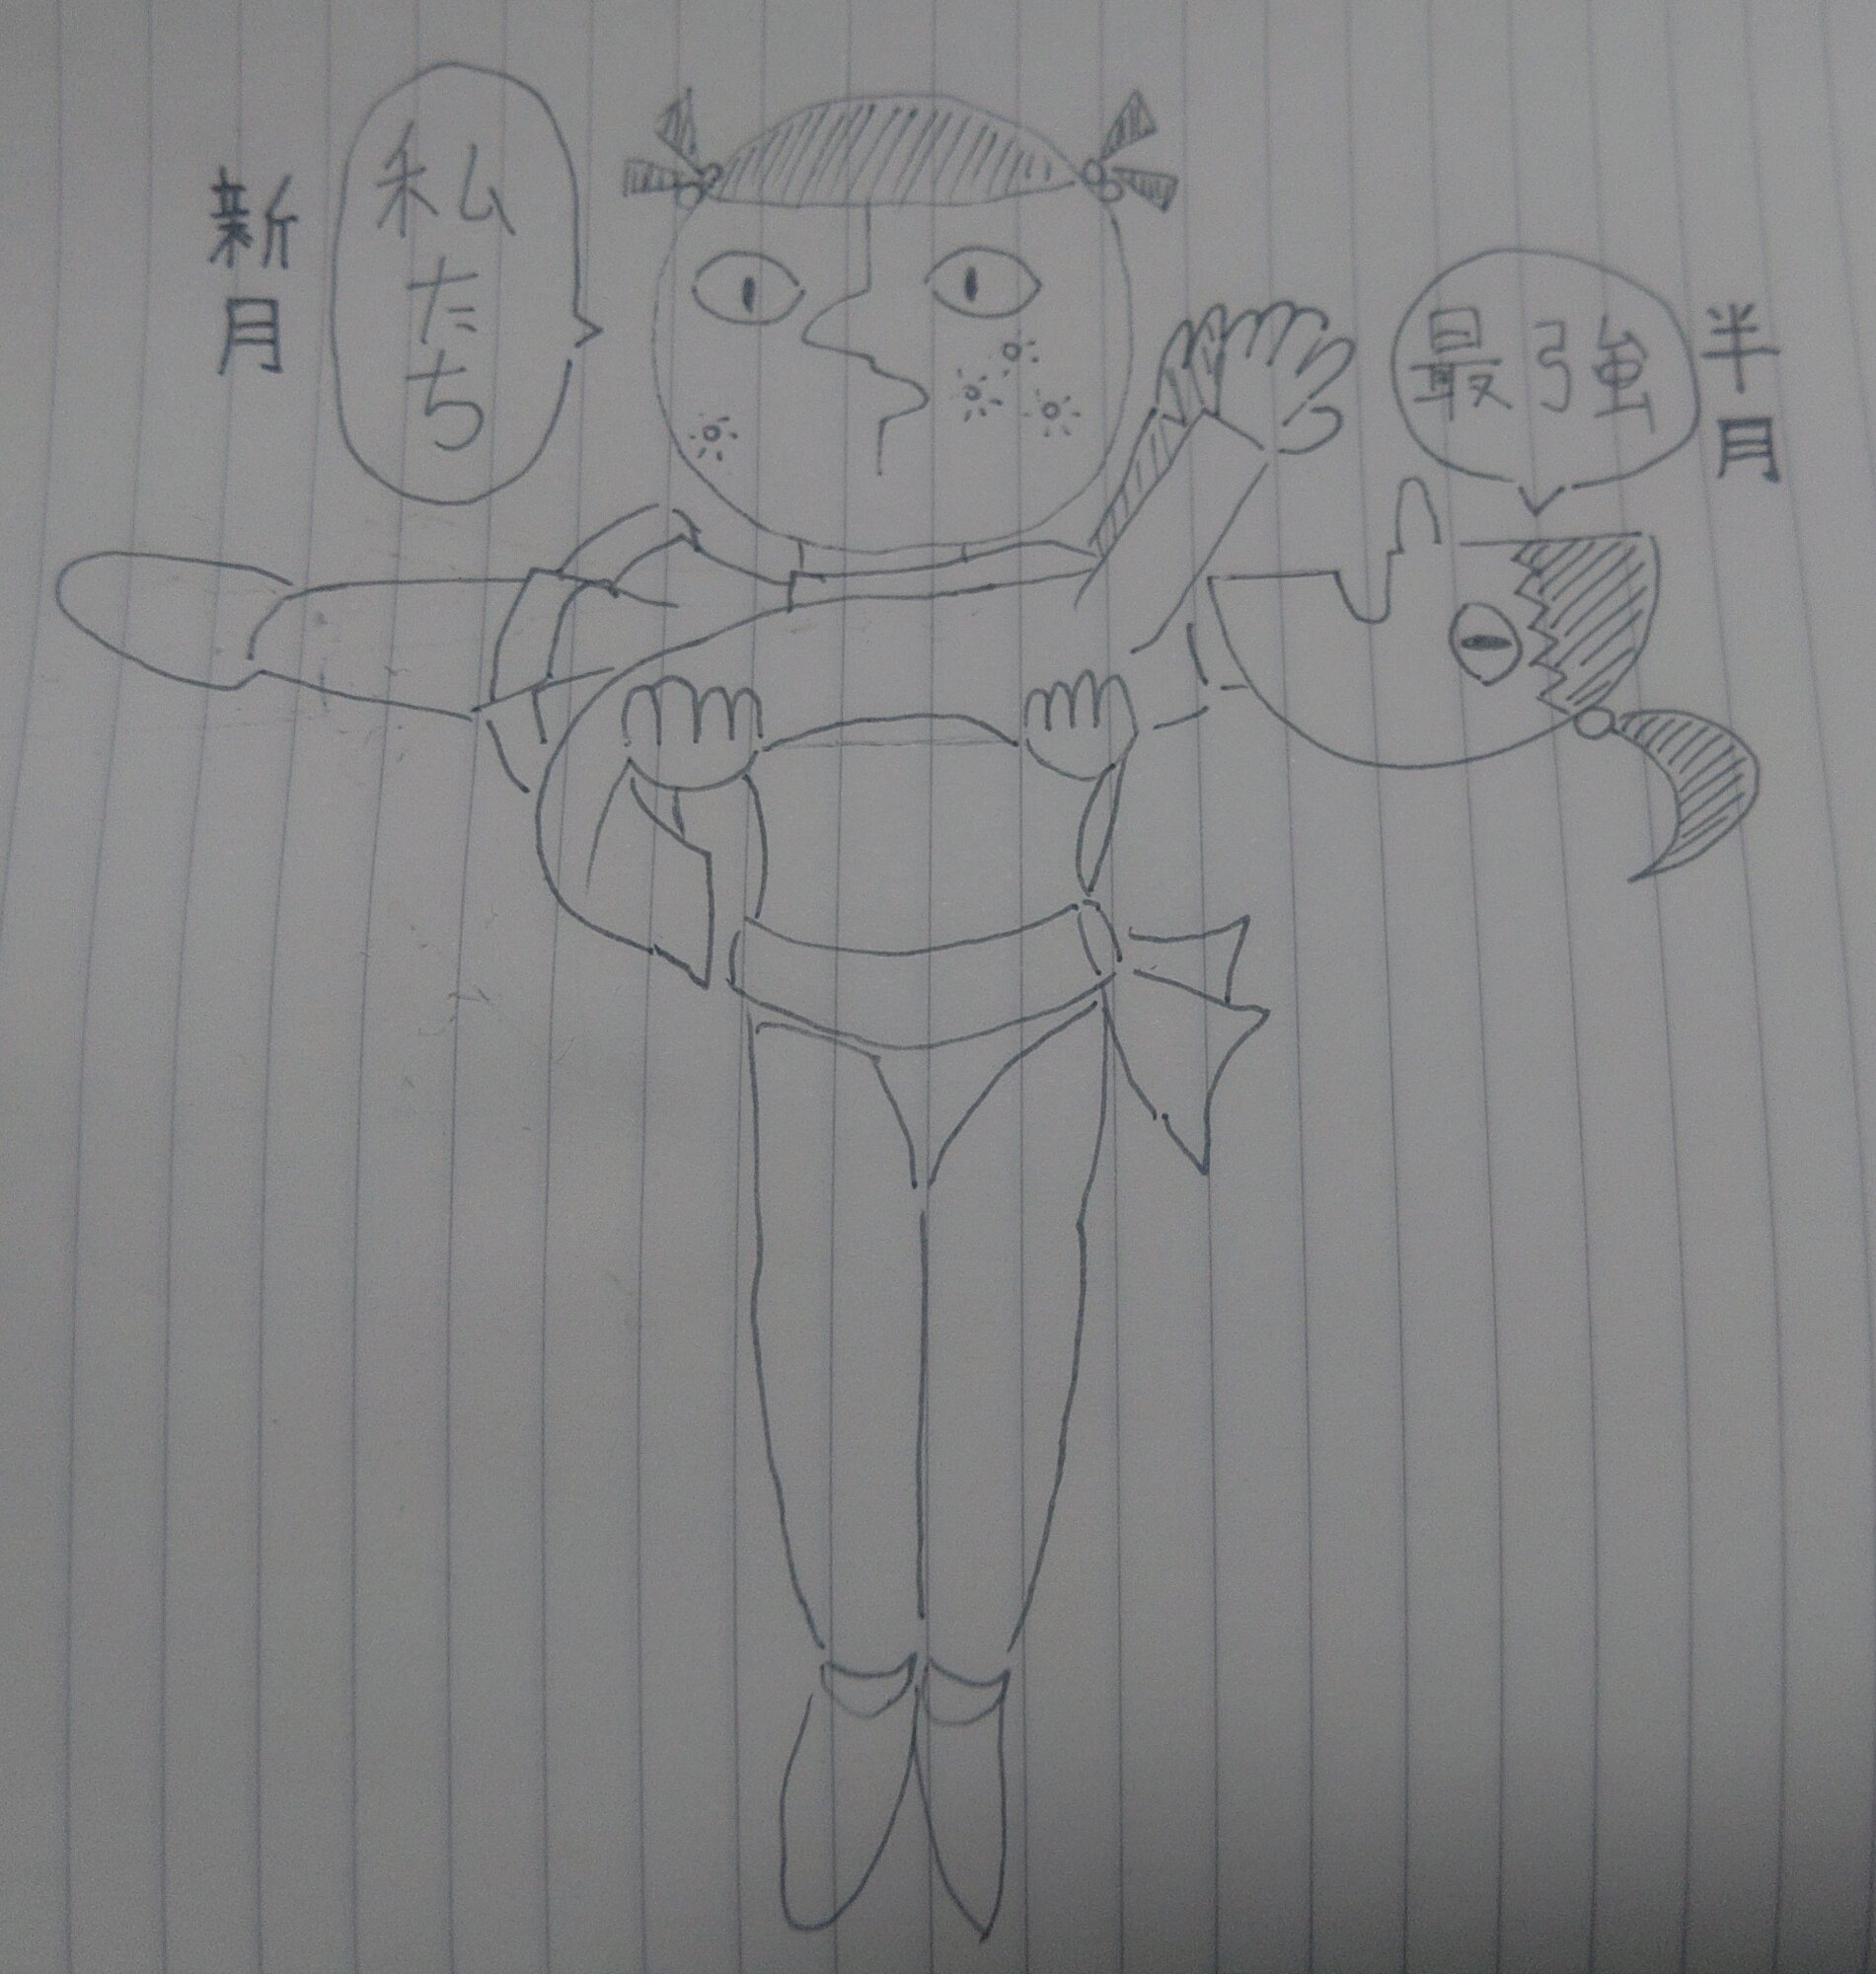 新月
私たち
最強
半月